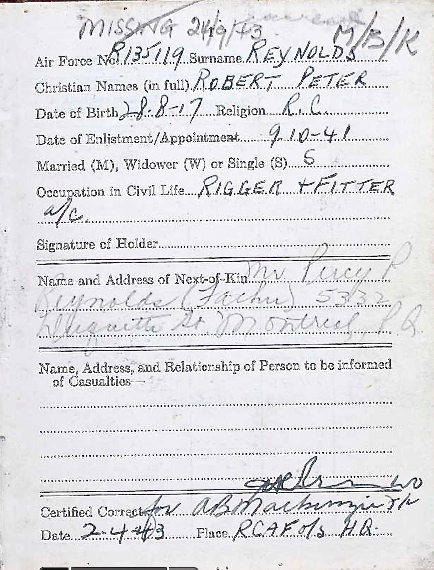 MISSING 24/9/43 M/B/K
Air Force No. R135119 Surname REYNOLDS
Christian Names (in full) ROBERT PETER
Date of Birth 28-8-17 Religion R.C.
Date of Enlistment/Appointment 9-10-41
Married (M), Widower (W) or Single (S) S
Occupation in Civil Life RIGGER + FITTER
a/c.
Signature of Holder
Name and Address of Next-of-Kin Mr Percy P
Reynolds (Father) 5332
St Montreal P.Q.
Name, Address, and Relationship of Person to be informed
of Casualties—
WO
Certified Correct for AB Mackenzie
Date 2-4-43 Place RCAF O/S HQ.